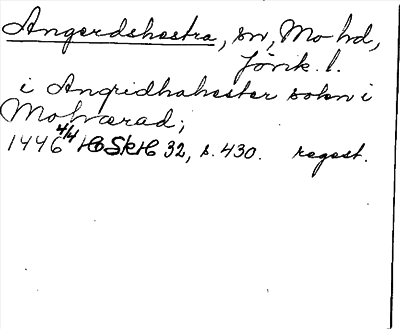 Angerdshestra, sn, Mo hd,
Jönk. l.
i Angridhahester sokn i
Mohærad;
1446 4/4 HSkH 32, s. 430. regest.